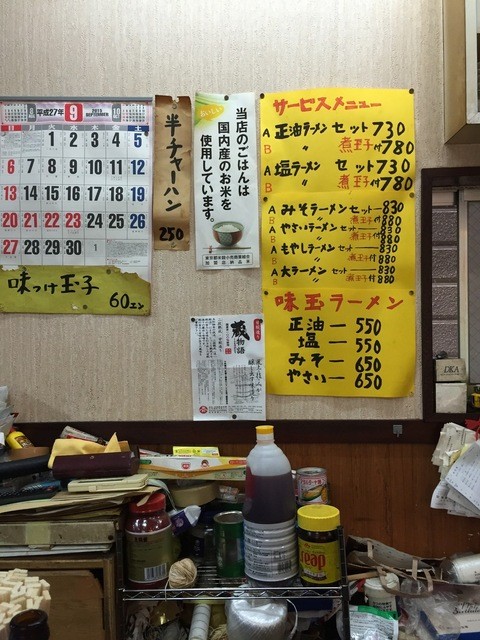 平成27年 9 2015 SEPTEMBER
日 月 火 水 木 金 土
1 2 3 4 5
6 7 8 9 10 11 12
13 14 15 16 17 18 19
20 21 22 23 24 25 26
27 28 29 30
味っけ玉子
60エン
半チャーハン
250
おいしい
当店のごはんは
国内産のお米を
使用しています。
サービスメニュー
A 正油ラーメン セット 730
B 〃 煮玉子付 780
A 塩ラーメン セット 730
B 〃 煮玉子付 780
A みそラーメン セット 830
B 〃 煮玉子付 880
A やさいラーメン セット 830
B 〃 煮玉子付 880
A もやしラーメン セット 830
B 〃 煮玉子付 880
A 大ラーメン セット 830
B 〃 煮玉子付 880
味玉ラーメン
正油 — 550
塩 — 550
みそ — 650
やさい — 650
蔵物語